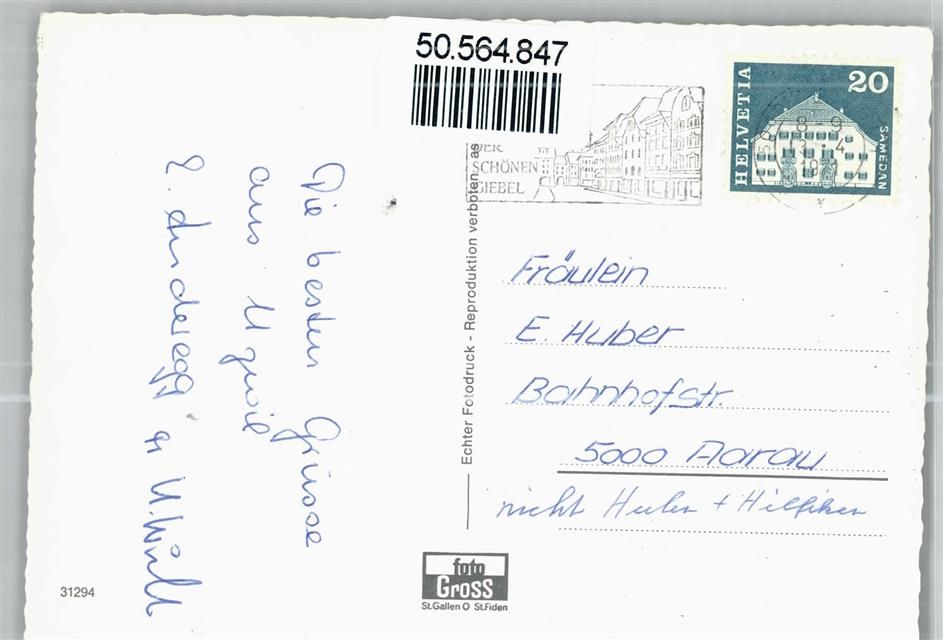 50.564.847
DER
SCHÖNEN
GIEBEL
HELVETIA
20
SAMEDAN
8-9
Die besten Grüsse
aus Uzwil
Echter Fotodruck - Reproduktion verboten. as
Fräulein
E. Huber
Bahnhofstr.
5000 Aarau
nicht Huber + Hilfiker
foto
Gross
St.Gallen O St.Fiden
31294